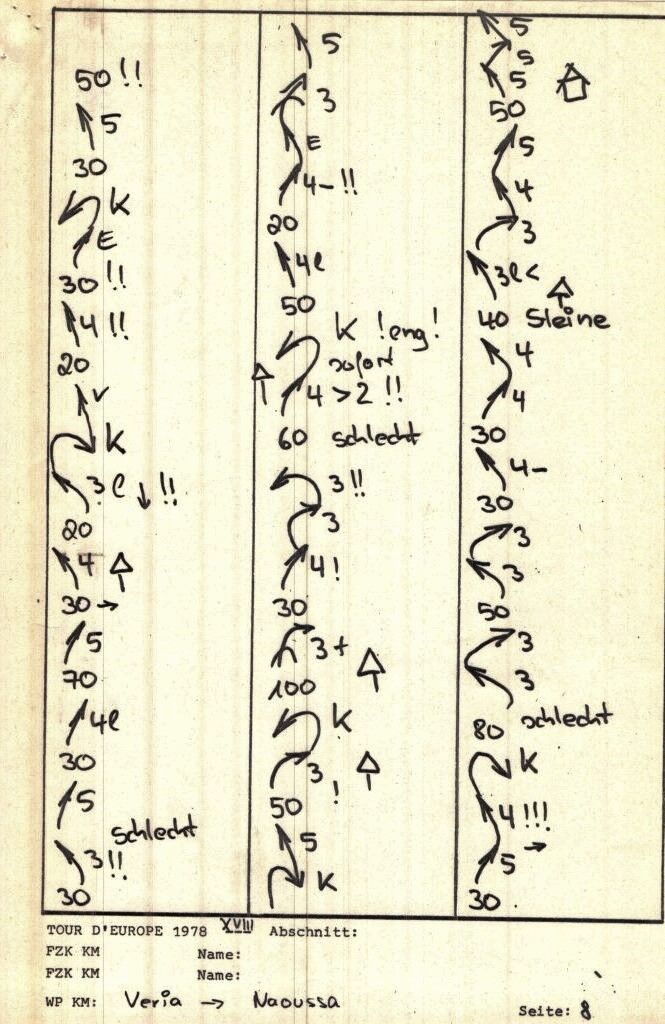 50 !!
5
30
K
E
30 !!
4 !!
20
v
K
3 l ↓ !!
20
4
30 →
5
70
4l
30
5
schlecht
3 !!
30
5
3
E
4- !!
20
4l
50
K !eng!
sofort
4 > 2 !!
60 schlecht
3 !!
3
4 !
30
3+
100
K
3
50 !
5
K
5
5
5
50
5
4
3
3l <
40 Steine
4
4
30
4-
30
3
3
50
3
3
80 schlecht
K
4 !!!
5 →
30
TOUR D'EUROPE 1978 XVIII Abschnitt:
FZK KM Name:
FZK KM Name:
WP KM: Veria → Naoussa
Seite: 8